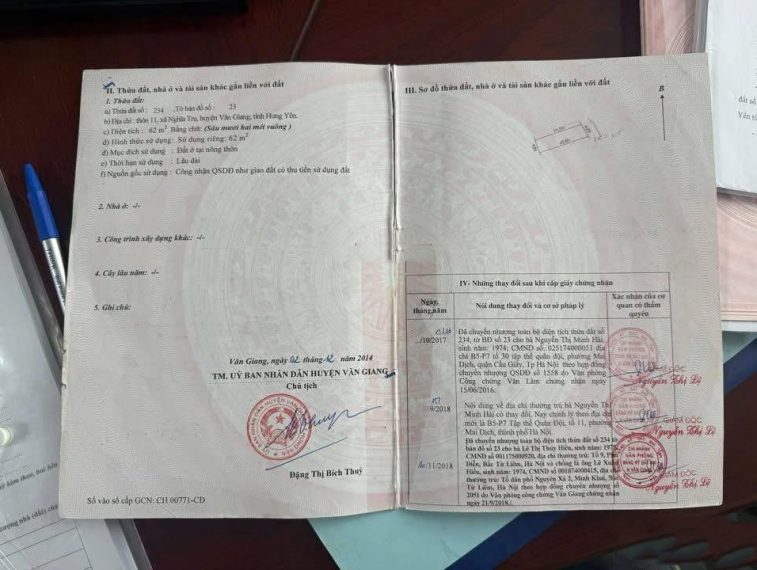 II. Thửa đất, nhà ở và tài sản khác gắn liền với đất
1. Thửa đất:
a) Thửa đất số: 234 , Tờ bản đồ số: 23
b) Địa chỉ: thôn 11, xã Nghĩa Trụ, huyện Văn Giang, tỉnh Hưng Yên.
c) Diện tích : 62 m² Bằng chữ: (Sáu mươi hai mét vuông)
d) Hình thức sử dụng: Sử dụng riêng: 62 m²
đ) Mục đích sử dụng : Đất ở tại nông thôn
e) Thời hạn sử dụng : Lâu dài
f) Nguồn gốc sử dụng : Công nhận QSDĐ như giao đất có thu tiền sử dụng đất
2. Nhà ở: -/-
3. Công trình xây dựng khác: -/-
4. Cây lâu năm: -/-
5. Ghi chú:
Văn Giang, ngày 02 tháng 12 năm 2014
TM. UỶ BAN NHÂN DÂN HUYỆN VĂN GIANG
Chủ tịch
Đặng Thị Bích Thuỷ
Số vào sổ cấp GCN: CH 00771-CĐ
III. Sơ đồ thửa đất, nhà ở và tài sản khác gắn liền với đất
B
IV- Những thay đổi sau khi cấp giấy chứng nhận
Ngày, tháng,năm
Nội dung thay đổi và cơ sở pháp lý
Xác nhận của cơ quan có thẩm quyền
/10/2017
Đã chuyển nhượng toàn bộ diện tích thửa đất số
234, tờ BĐ số 23 cho bà Nguyễn Thị Minh Hải,
sinh năm: 1974; CMND số: 025174000051 địa
chỉ B5-P7 tổ 30 tập thể quân đội, phường Mai
Dịch, quận Cầu Giấy, Tp Hà Nội theo hợp đồng
chuyển nhượng QSDĐ số 1558 do Văn Phòng
Công chứng Văn Lâm chứng nhận ngày
15/06/2016.
Nguyễn Thị Lệ
9/2018
Nội dung về địa chỉ thường trú bà Nguyễn Thị
Minh Hải có thay đổi. Nay chỉnh lý theo địa chỉ
mới là B5-P7 Tập thể Quân đội, tổ 11, phường
Mai Dịch, thành phố Hà Nội.
GIÁM ĐỐC
Nguyễn Thị Lệ
/11/2018
Đã chuyển nhượng toàn bộ diện tích thửa đất số 234 tờ
bản đồ số 23 cho bà Lê Thị Thúy Hiền, sinh năm: 1975,
CMND số 001175000920, địa chỉ thường trú: Tổ 9, P
Diễn, Bắc Từ Liêm, Hà Nội và chồng là ông Lê Xuân
Hiên, sinh năm: 1974, CMND số 001074000415, địa chỉ
thường trú: Tổ dân phố Nguyên Xá 2, Minh Khai, Bắc
Từ Liêm, Hà Nội theo hợp đồng chuyển nhượng số
2051 do Văn phòng công chứng Văn Giang chứng nhận
ngày 21/9/2018./.
CHI NHÁNH
VĂN PHÒNG
GIÁM ĐỐC
Nguyễn Thị Lệ